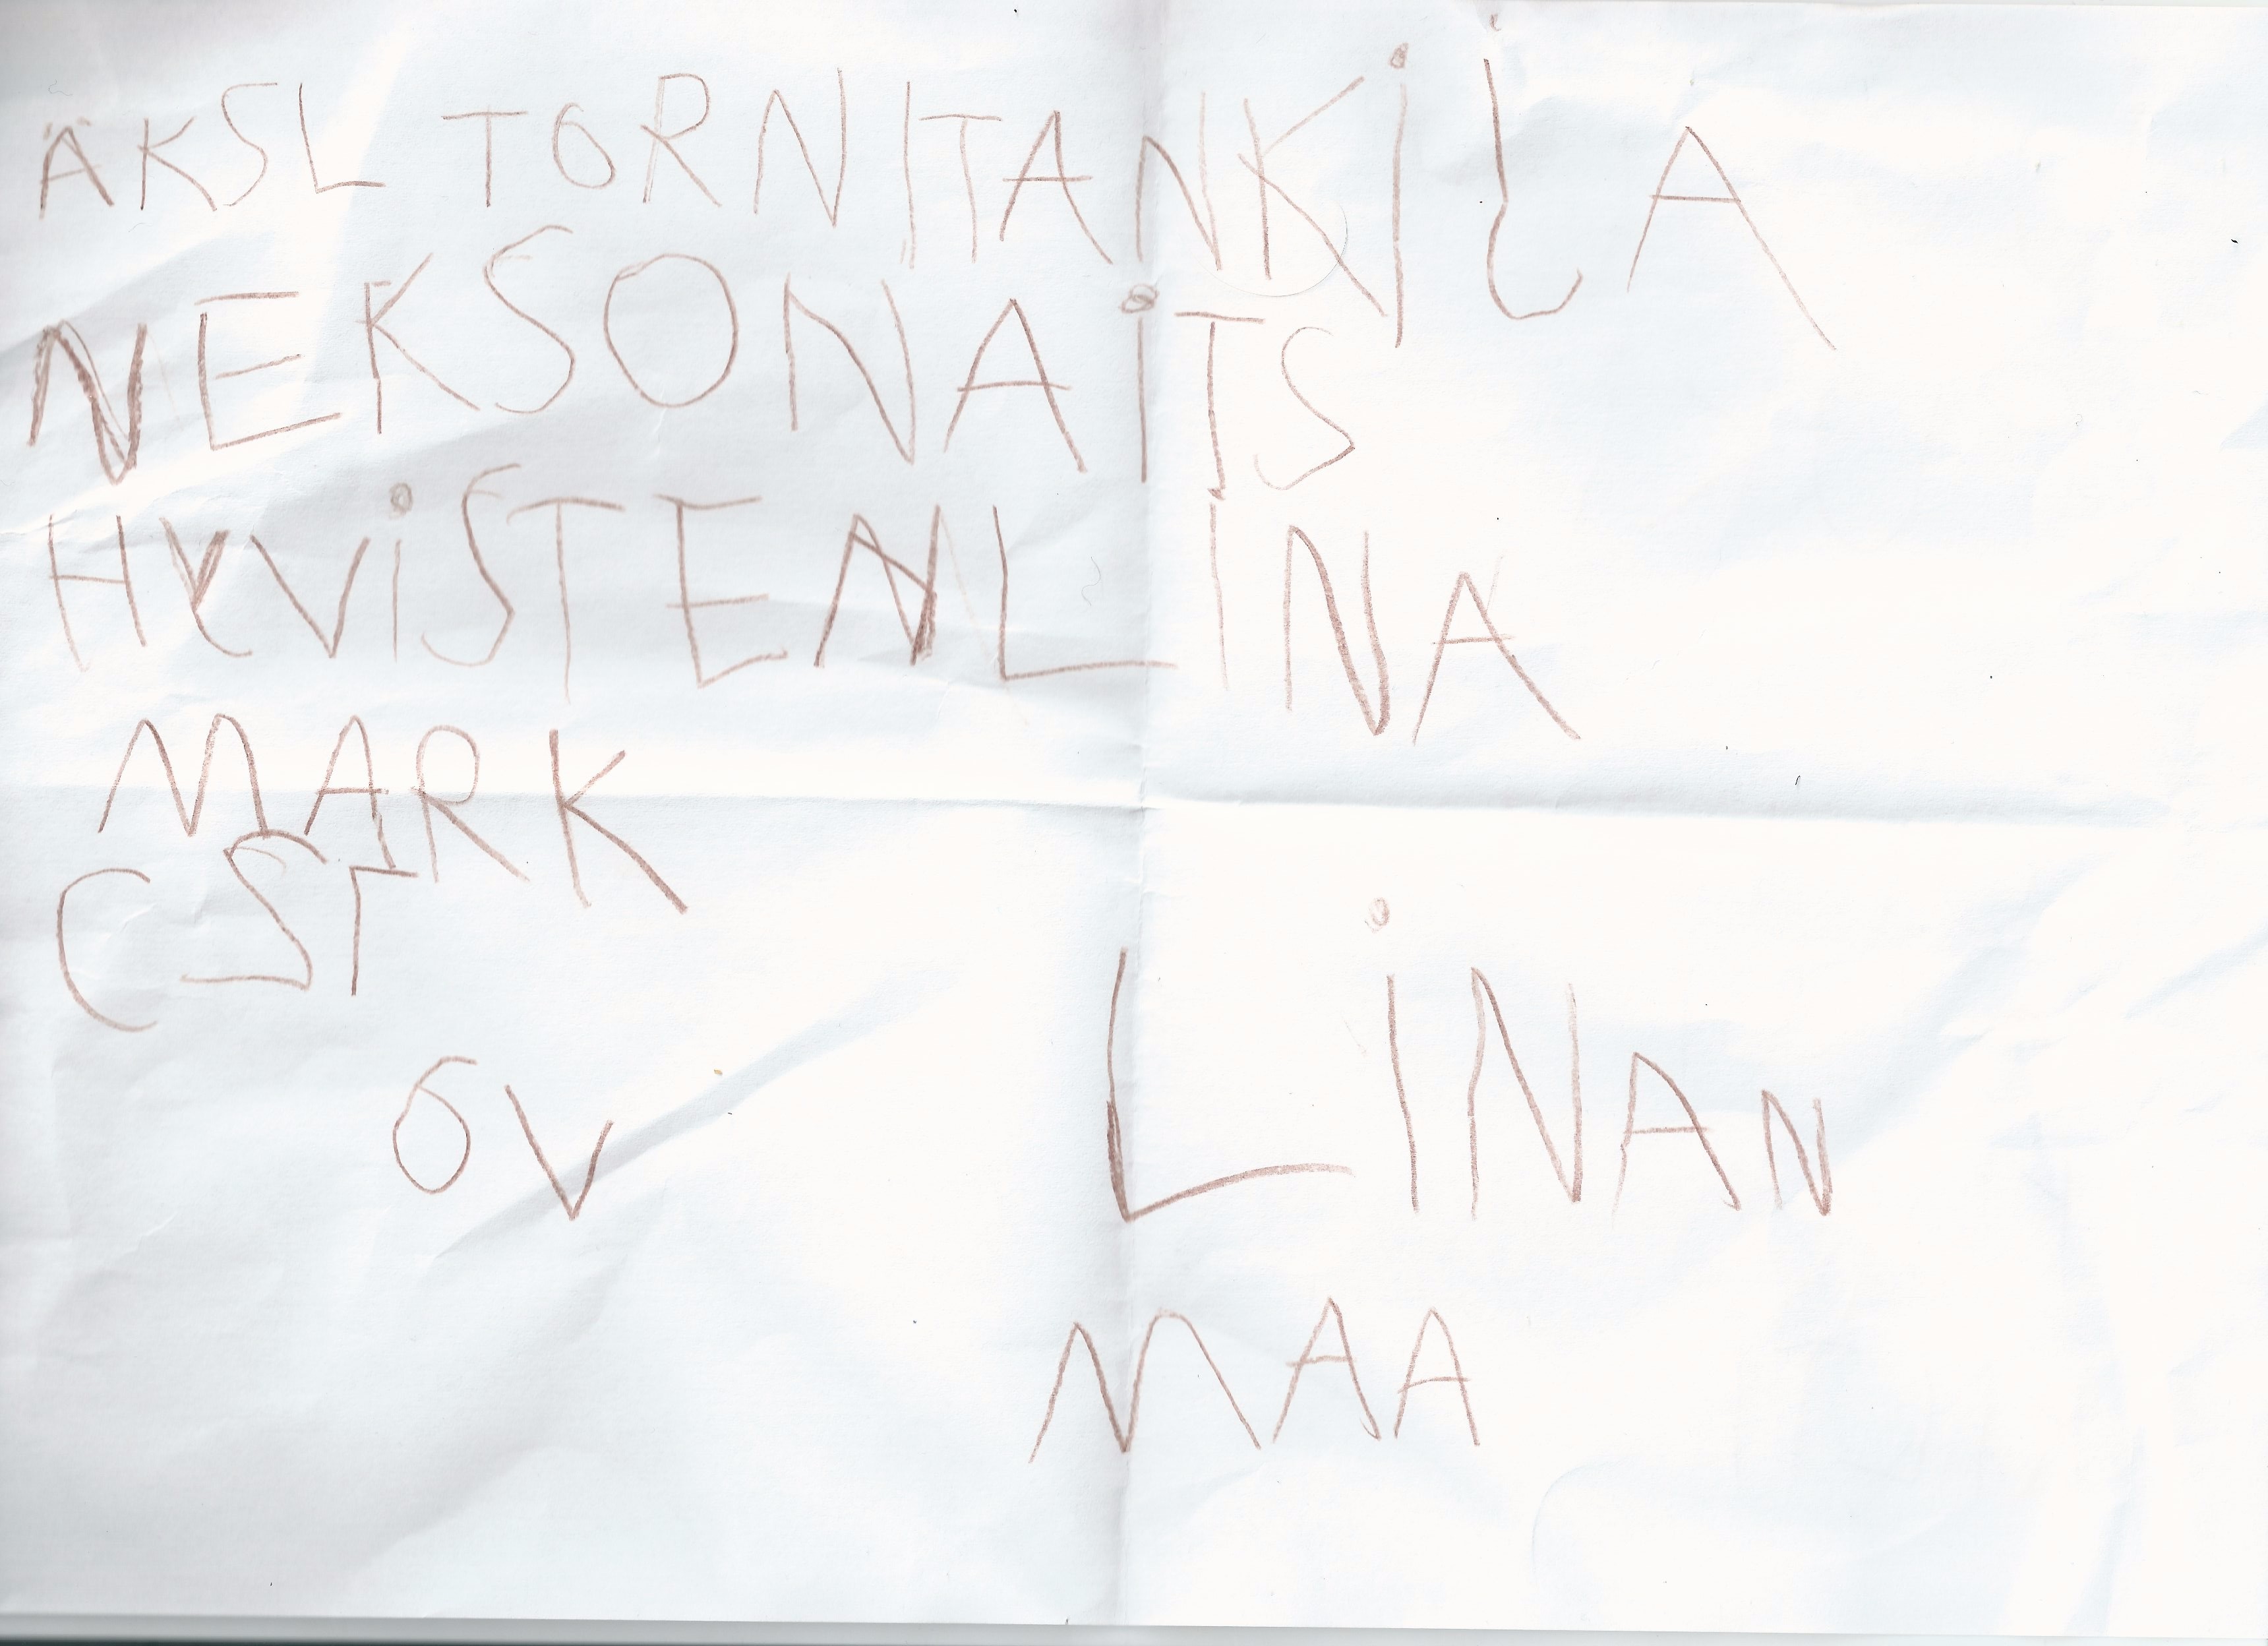 ÄKSL TORNITANKIJA
NEKSONAITS
HYVISTENLINA
MARK
CST
6V
LINAN
MAA